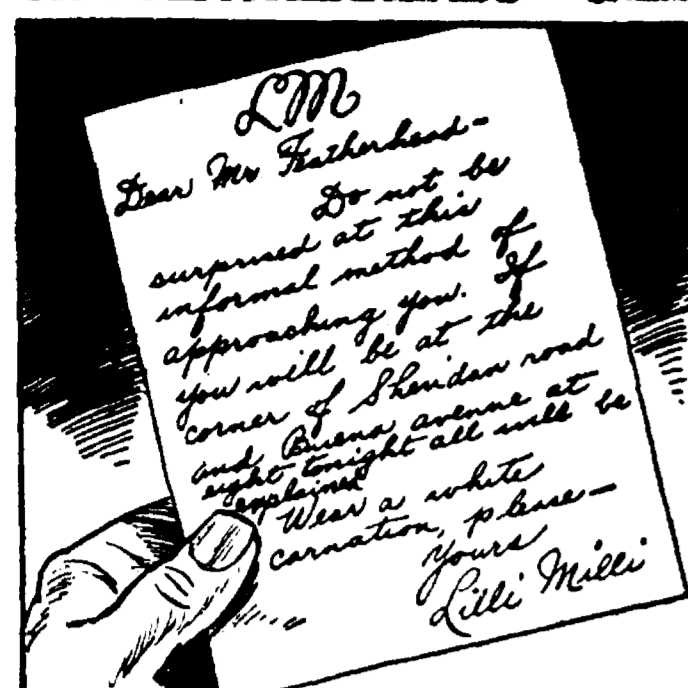 LM
Dear Mr Featherhead-
Do not be
surprised at this
informal method of
approaching you. If
you will be at the
corner of Sheridan road
and Buena avenue at
eight tonight all will be
explained
Wear a white
carnation, please-
Yours
Lilli Milli